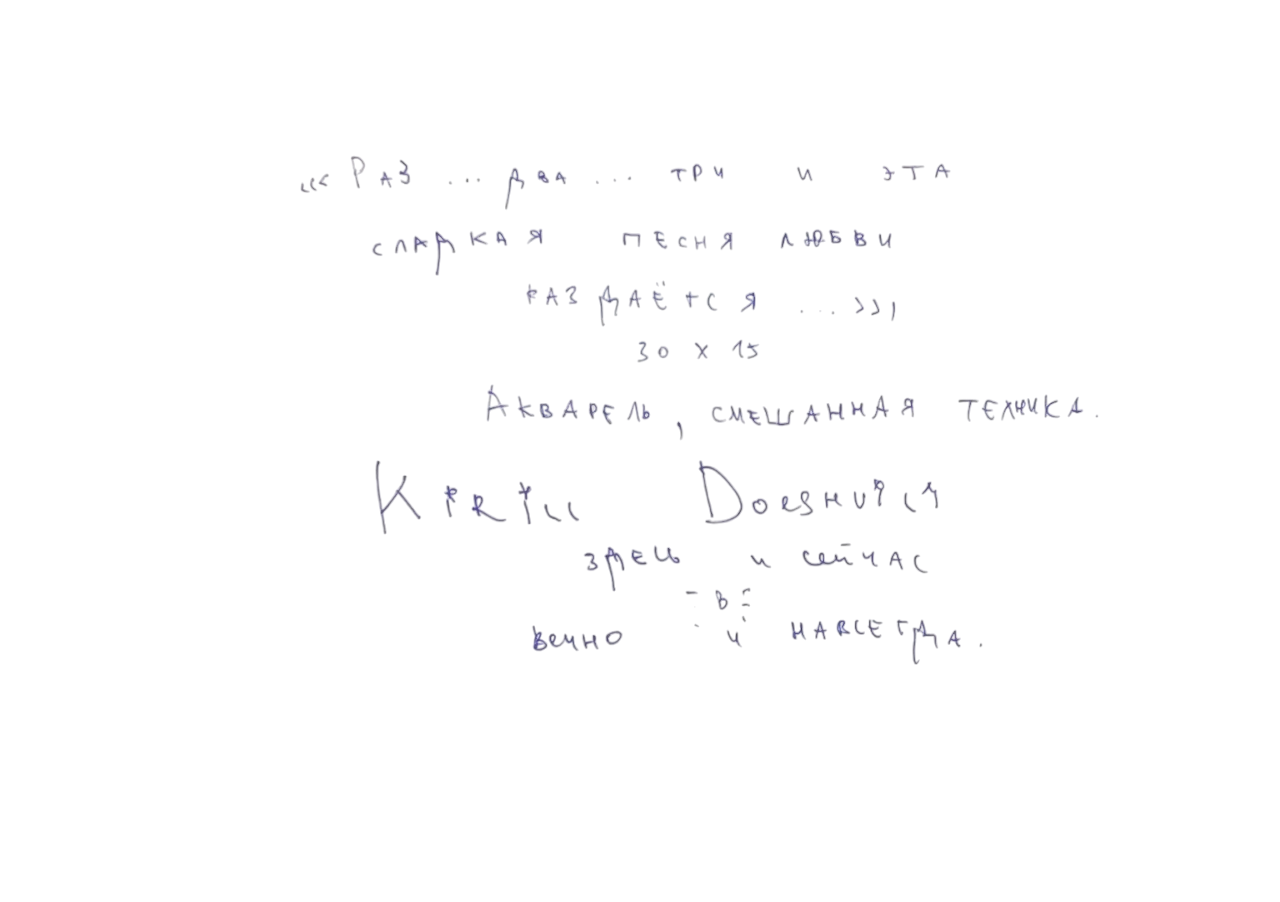 «« Раз ... два ... три и эта
сладкая песня любви
раздаётся ... »»
30 x 15
Акварель, смешанная техника.
Kirill
здесь и сейчас
в
вечно и навсегда.